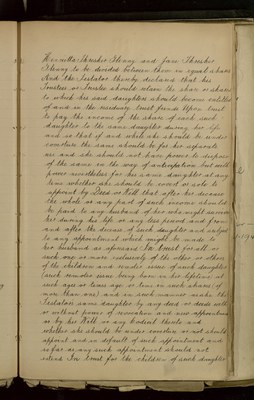 Henrietta Thresher Shong and Jane Thresher
Shong to be divided between them in equal shares
And the Testator thereby declared that his
Trustees or Trustee should retain the share or shares
to which his said daughters should become entitled
of and in the residuary trust funds Upon trust
to pay the income of the share of each such
daughter to the same daughter during her life
and so that if and while she should be under
coverture the same should be for her separate
use and she should not have power to dispose
of the same in the way of anticipation but with
power nevertheless for her same daughter at any
time whether she should be covert or sole to
appoint by Deed or Will that after her decease
the whole or any part of such income should
be paid to any husband of her who might survive
her during his life or any less period and from
and after the decease of such daughter and subject
to any appointment which might be made to
her husband as aforesaid In trust for all or
such one or more exclusively of the other or others
of the children and remoter issue of such daughter
(such remoter issue being born in her lifetime) at
such age or time ages or times in such shares (if
more than one) and in such manner as the
Testators same daughter by any deed or deeds with
or without power of revocation and new appointment
or by her Will or any Codicil thereto and
whether she should be under coverture or not should
appoint and in default of such appointment and
so far as any such appointment should not
extend In trust for the children of such daughter